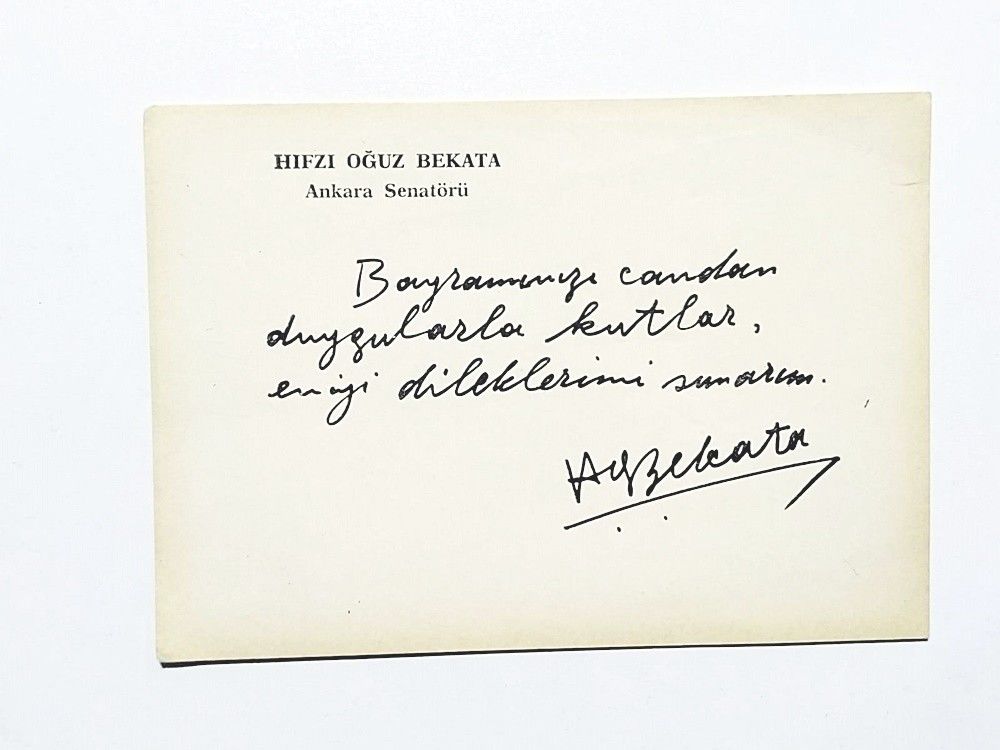 HIFZI OĞUZ BEKATA
Ankara Senatörü
Bayramınızı candan
duygularla kutlar,
en iyi dileklerimi sunarım.
HOBekata